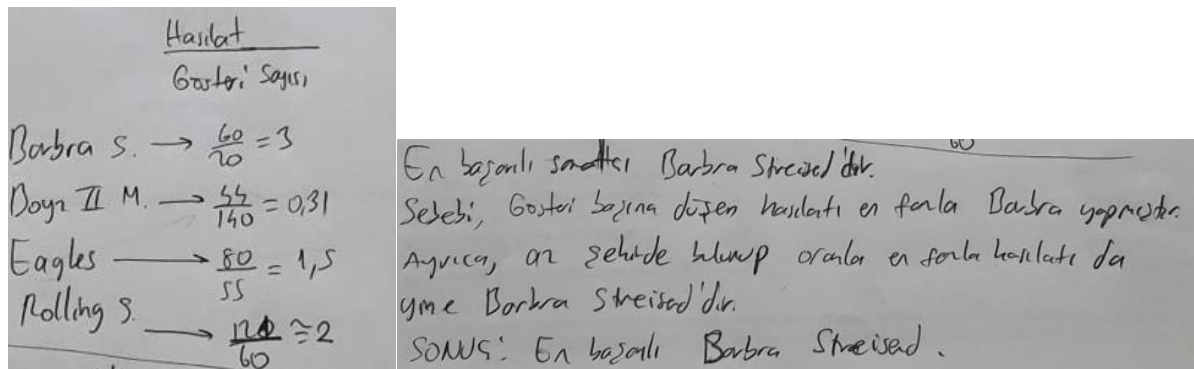 Hasılat
Gösteri Sayısı
Barbra S. → 60/20 = 3
Boyz II M. → 44/140 = 0,31
Eagles → 80/55 = 1,5
Rolling S. → 121/60 ≅ 2
60
En başarılı sanatçı Barbra Streisad'dır.
Sebebi, Gösteri başına düşen hasılatı en fazla Barbra yapmıştır.
Ayrıca, az şehirde bulunup oranla en fazla hasılatı da
yine Barbra Streisad'dır.
SONUÇ: En başarılı Barbra Streisead.